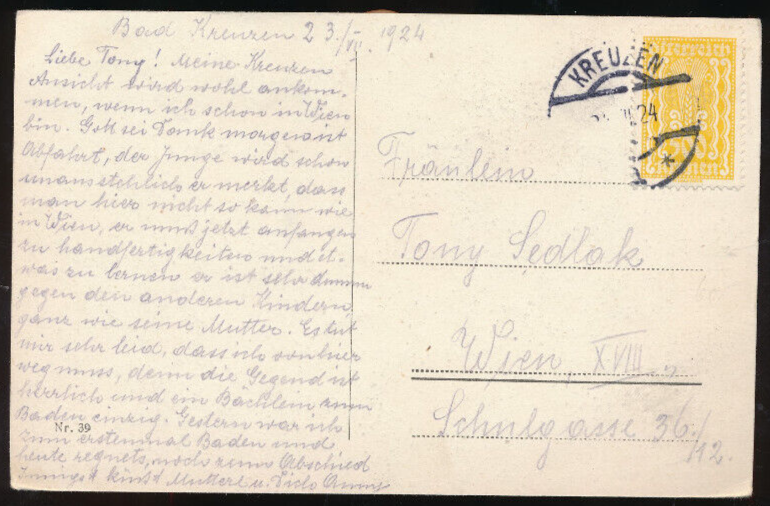 Bad Kreuzen 23./VII. 1924
Liebe Tony! Meine Kreuzen
Ansicht wird wohl ankom-
men, wenn ich schon in Wien
bin. Gott sei Dank morgen ist
Abfahrt, der Junge wird schon
unausstehlich er merkt, dass
man hier nicht so kann wie
in Wien, er muß jetzt anfangen
zu handfertigkeiten und et-
was zu lernen er ist sehr dumm
gegen den anderen Kindern
ganz wie seine Mutter. Es tut
mir sehr leid, dass ich von hier
weg muss, denn die Gegend ist
herrlich und ein Bächlein zum
Baden einzig. Gestern war ich
zum erstenmal Baden und
heute regnets, noch zum Abschied
Innigst küsst Mutterl u.
Nr. 39
KREUZEN
VII 24
Österreich
500
Kronen
Fräulein
Tony Sedlak
Wien, XVIII.,
Schulgasse 36/
12.